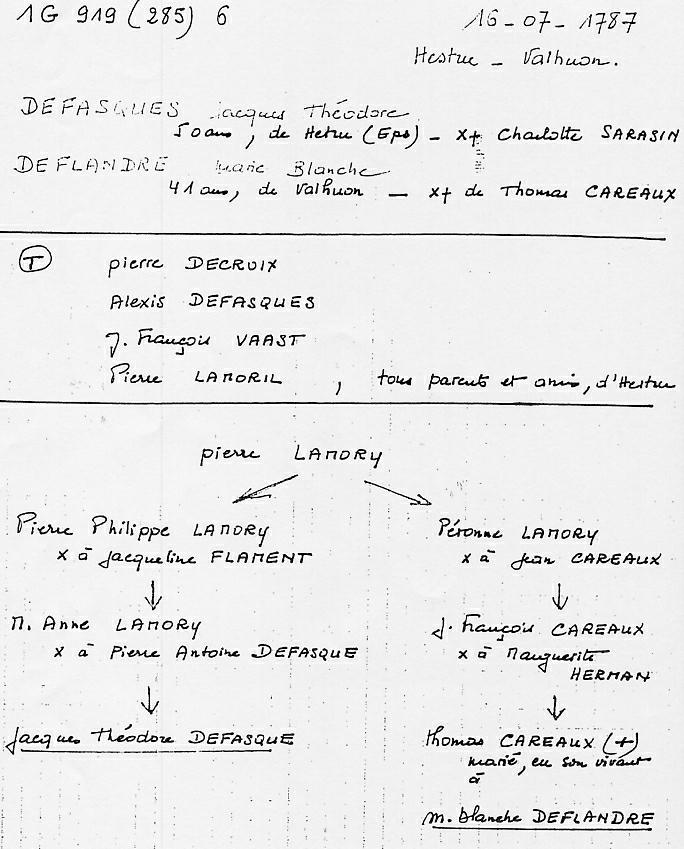 1G 919 (285) 6
16-07-1787
Hestrus - Valhuon.
DEFASQUES Jacques Théodore
50 ans, de Hetru (Eps) - x+ Charlotte SARASIN
DEFLANDRE Marie Blanche
41 ans, de Valhuon - x+ de Thomas CAREAUX
T
pierre DECROIX
Alexis DEFASQUES
J. François VAAST
Pierre LAMORIL, tous parents et amis, d'Hestru
pierre LAMORY
Pierre Philippe LAMORY
x à Jacqueline FLAMENT
Péronne LAMORY
x à Jean CAREAUX
M. Anne LAMORY
x à Pierre Antoine DEFASQUE
J. François CAREAUX
x à Marguerite
HERMAN
Jacques Théodore DEFASQUE
thomas CAREAUX (+)
marié, en son vivant
à
M. blanche DEFLANDRE